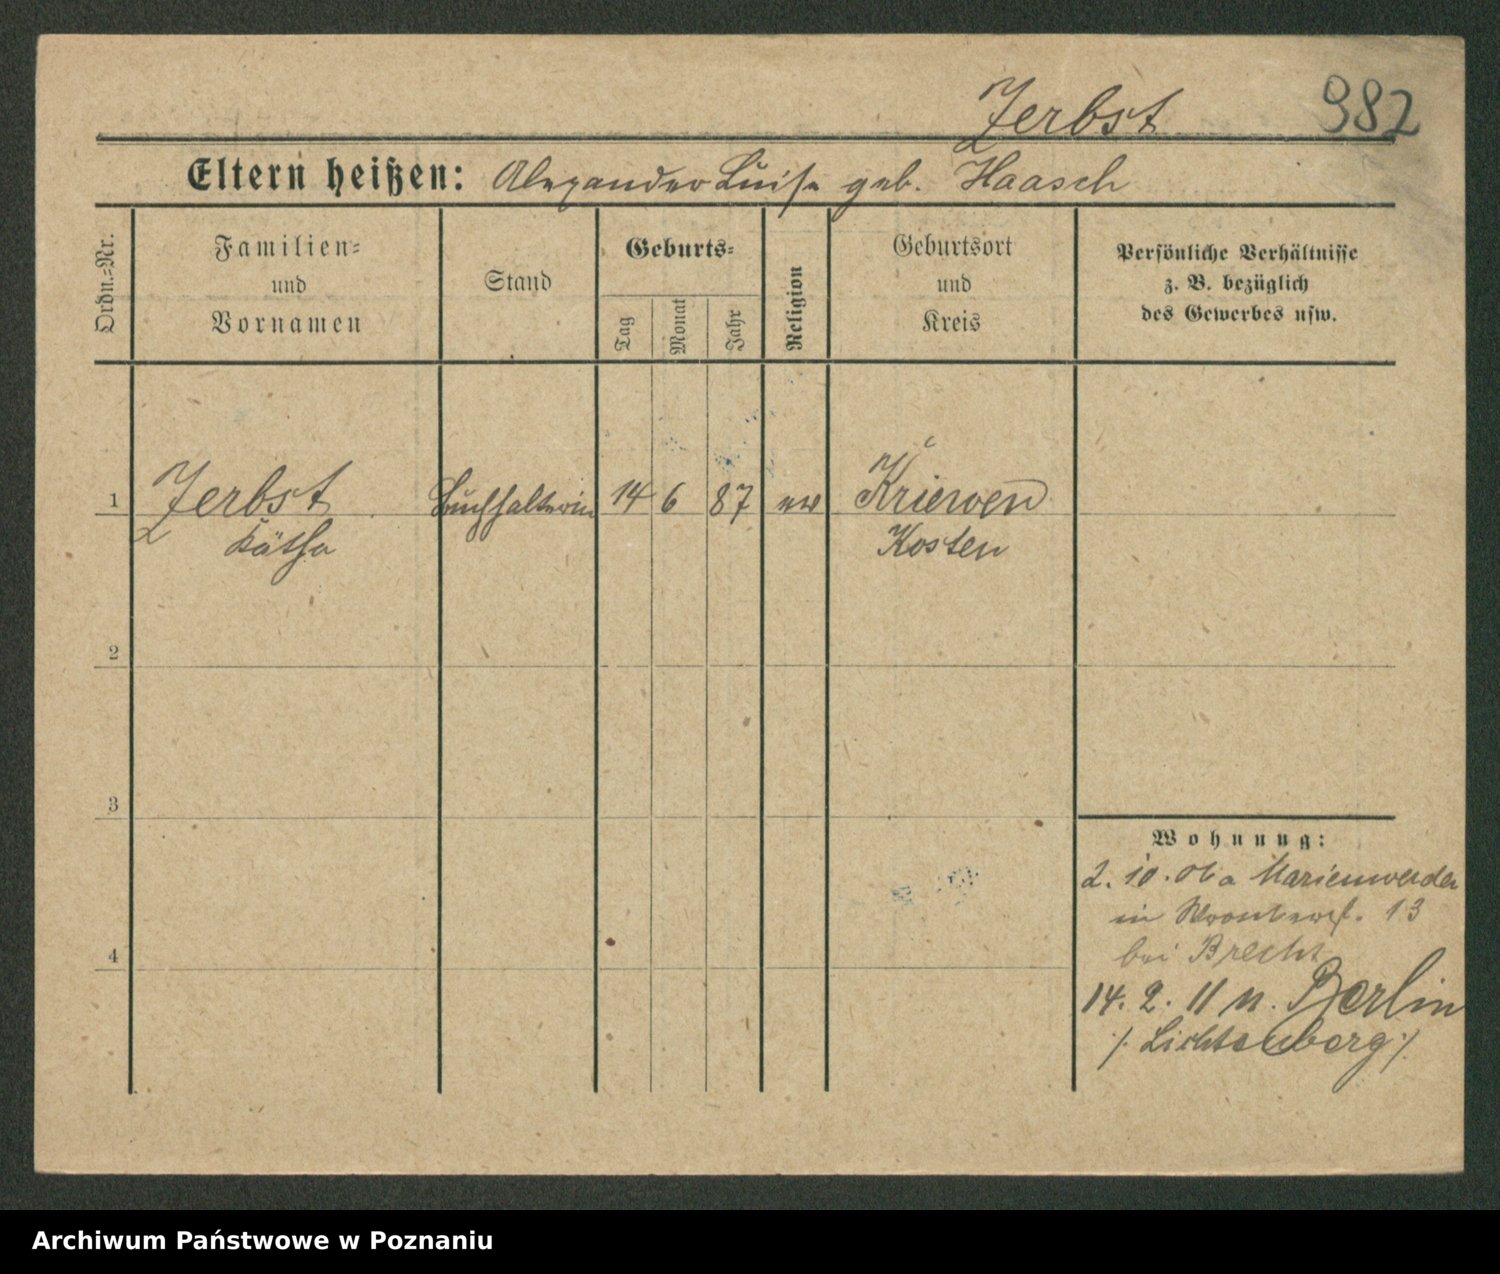 Zerbst 982
Eltern heißen: Alexander Luise geb. Haasch
Ordn.-Nr.
Familien-
und
Vornamen
Stand
Geburts-
Tag
Monat
Jahr
Religion
Geburtsort
und
Kreis
Persönliche Verhältnisse
z. B. bezüglich
des Gewerbes usw.
1 Zerbst Buchhalterin 14 6 87 ev Kriewen
Käthe Kosten
2
3
4
Wohnung:
2. 10. 06 a Marienwerder
in 13
bei Brecht
14. 2. 11 n. Berlin
/. Lichtenberg ./.
Archiwum Państwowe w Poznaniu